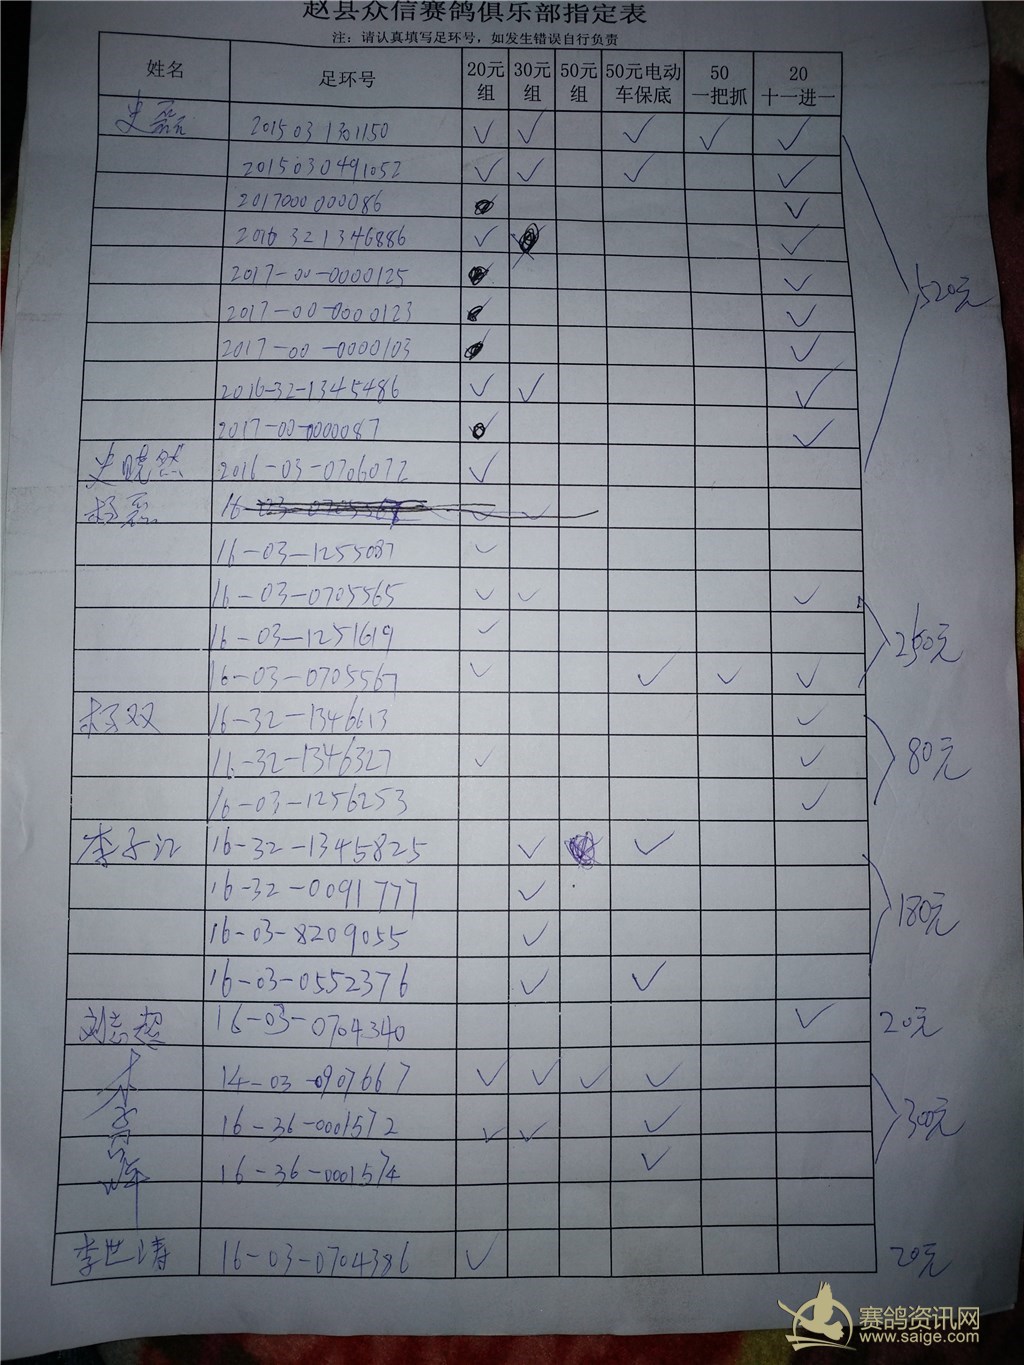 赵县众信赛鸽俱乐部指定表
注：请认真填写足环号，如发生错误自行负责
姓名 足环号 20元组 30元组 50元组 50元电动车保底 50一把抓 20十一进一
史磊 2015031301150 ✓ ✓ ✓ ✓ ✓
2015030491052 ✓ ✓ ✓ ✓
2017000000086 ✓
2016321346886 ✓ ✓
2017-00-0000125 ✓
2017-00-0000123 ✓
2017-00-0000103 ✓
2016-32-1345486 ✓ ✓ ✓
2017-00-0000087 ✓
520元
史晓然 2016-03-0706072 ✓
杨磊 16-03-0705568 ✓ ✓
16-03-1255087 ✓
16-03-0705565 ✓ ✓ ✓
16-03-1251619 ✓
16-03-0705567 ✓ ✓ ✓ ✓
260元
杨双 16-32-1346613 ✓
16-32-1346327 ✓ ✓
16-03-1256253 ✓
80元
李子江 16-32-1345825 ✓ ✓
16-32-0091777 ✓
16-03-8209055 ✓
16-03-0552376 ✓ ✓
180元
刘志超 16-03-0704340 ✓ 20元
14-03-0907667 ✓ ✓ ✓ ✓
16-36-0001572 ✓ ✓ ✓
16-36-0001574 ✓
300元
李世涛 16-03-0704386 ✓ 20元
赛鸽资讯网
www.saige.com